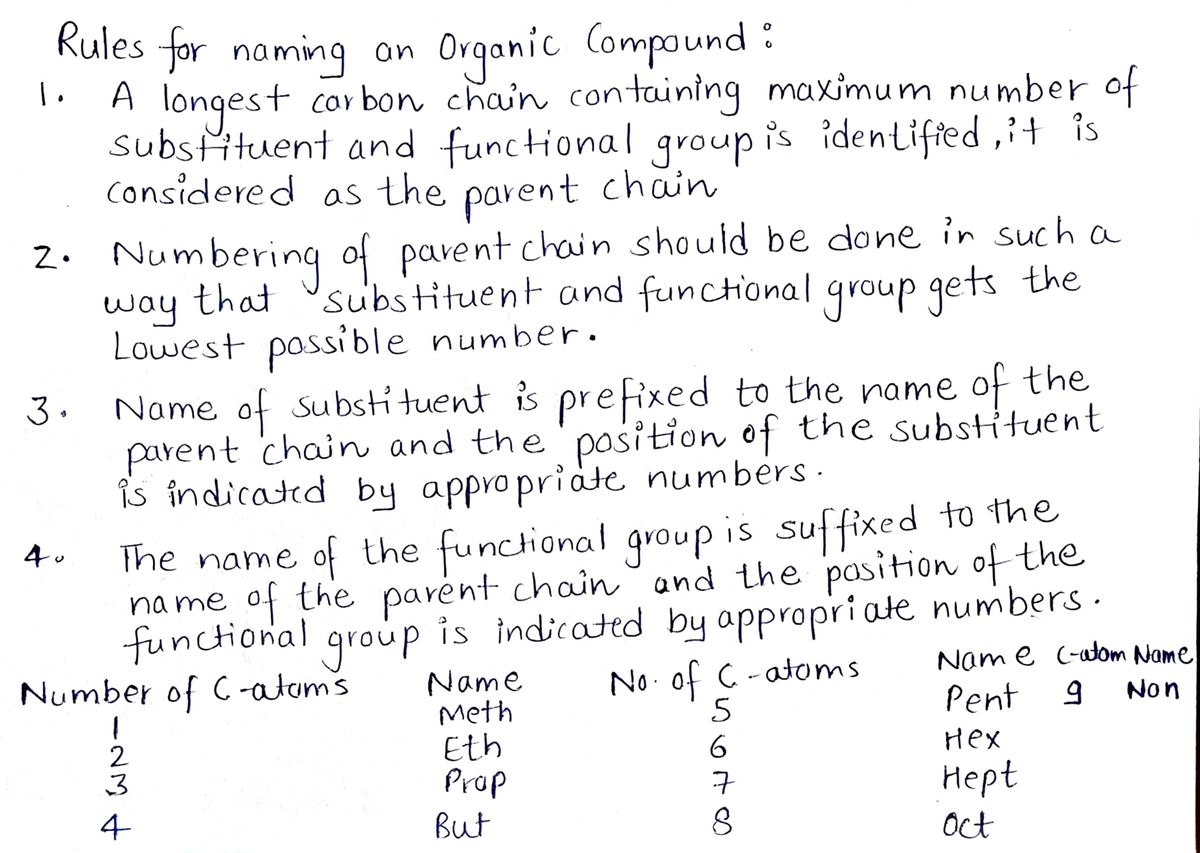 Rules for naming an Organic Compound :
1. A longest carbon chain containing maximum number of
substituent and functional group is identified, it is
considered as the parent chain
2. Numbering of parent chain should be done in such a
way that substituent and functional group gets the
Lowest possible number.
3. Name of substituent is prefixed to the name of the
parent chain and the position of the substituent
is indicated by appropriate numbers.
4. The name of the functional group is suffixed to the
name of the parent chain and the position of the
functional group is indicated by appropriate numbers.
Number of C-atoms Name No. of C-atoms Name C-atom Name
1 Meth 5 Pent 9 Non
2 Eth 6 Hex
3 Prop 7 Hept
4 But 8 Oct